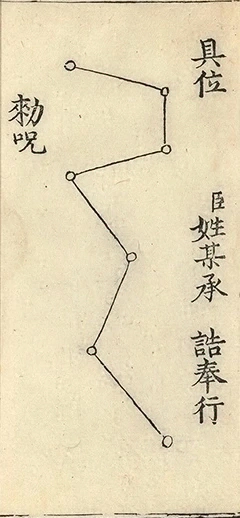 具位　臣姓某承　誥奉行
勑呪